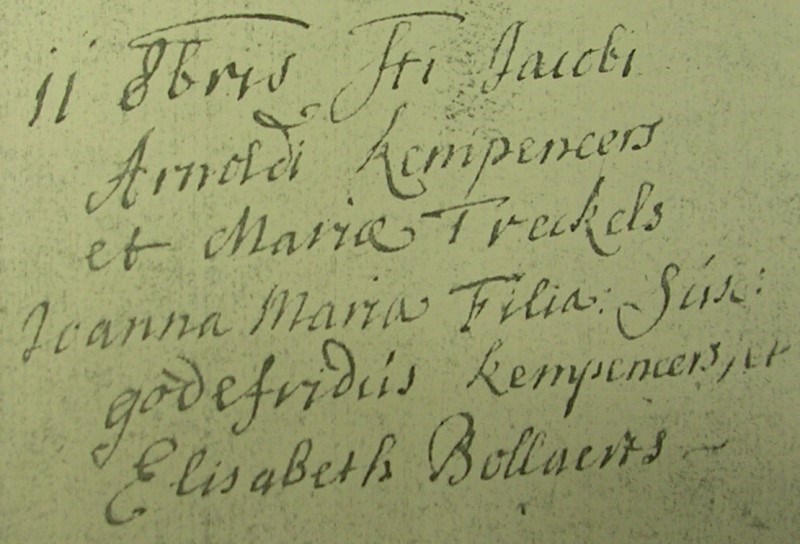 11 8bris Sti Jacobi
Arnoldi kempeneers
et Mariæ Treckels
Joanna Maria Filia: Sús:
godefridús kempeneers, et
Elisabeth Bollaerts